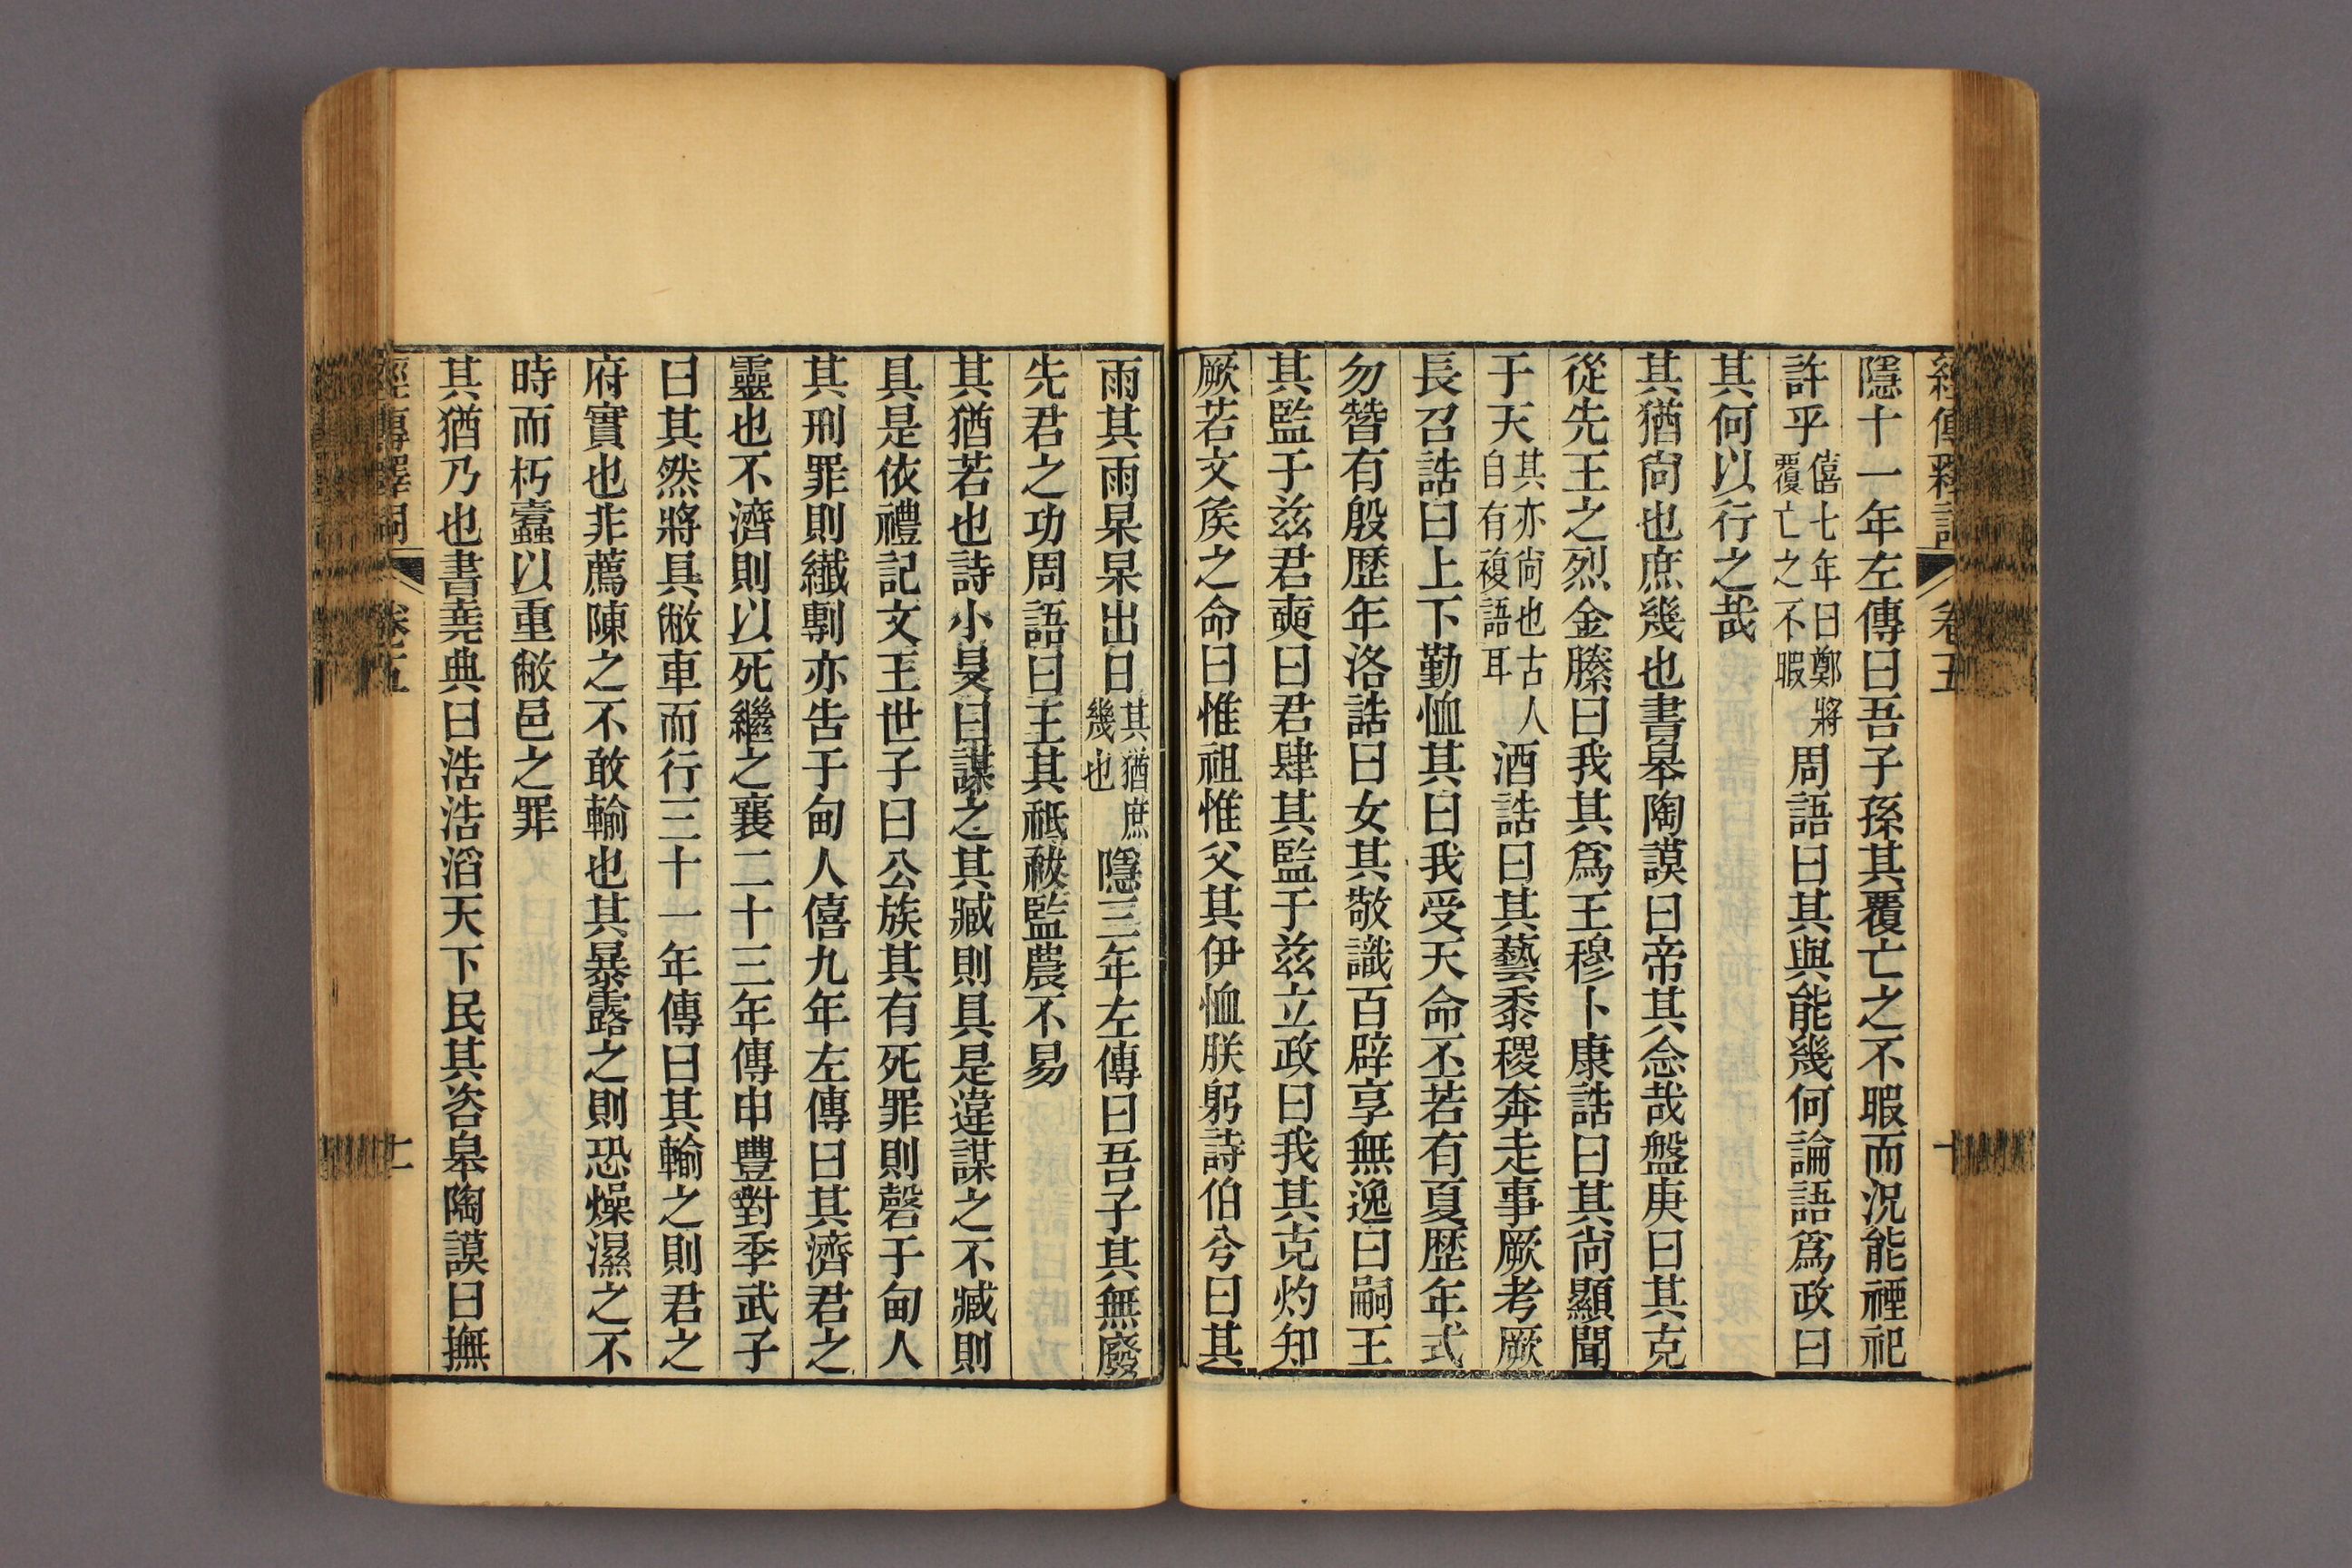 經傳釋詞 卷五 十
隱十一年左傳曰吾子孫其覆亡之不暇而況能禋祀
許乎僖七年曰鄭將覆亡之不暇周語曰其與能幾何論語爲政曰
其何以行之哉
其猶尙也庶幾也書皋陶謨曰帝其念哉盤庚曰其克
從先王之烈金縢曰我其爲王穆卜康誥曰其尙顯聞
于天其亦尙也古人自有複語耳酒誥曰其藝黍稷奔走事厥考厥
長召誥曰上下勤恤其曰我受天命丕若有夏歴年式
勿替有殷歴年洛誥曰女其敬識百辟享無逸曰嗣王
其監于兹君奭曰君肆其監于兹立政曰我其克灼知
厥若文矦之命曰惟祖惟父其伊恤朕躬詩伯兮曰其
雨其雨杲杲出日其猶庶幾也隱三年左傳曰吾子其無廢
先君之功周語曰王其祗祓監農不易
其猶若也詩小旻曰謀之其臧則具是違謀之不臧則
具是依禮記文王世子曰公族其有死罪則磬于甸人
其刑罪則纖剸亦告于甸人僖九年左傳曰其濟君之
靈也不濟則以死繼之襄二十三年傳申豐對季武子
曰其然將具敝車而行三十一年傳曰其輸之則君之
府實也非薦陳之不敢輸也其暴露之則恐燥濕之不
時而朽蠹以重敝邑之罪
其猶乃也書堯典曰浩浩滔天下民其咨皋陶謨曰撫
經傳釋詞 卷五